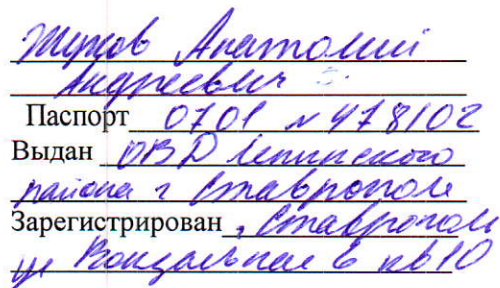 Жуков Анатолий
Андреевич
Паспорт 0701 № 478102
Выдан ОВД Ленинского
района г Ставрополя
Зарегистрирован г Ставрополь
ул Вокзальная 6 кв 10